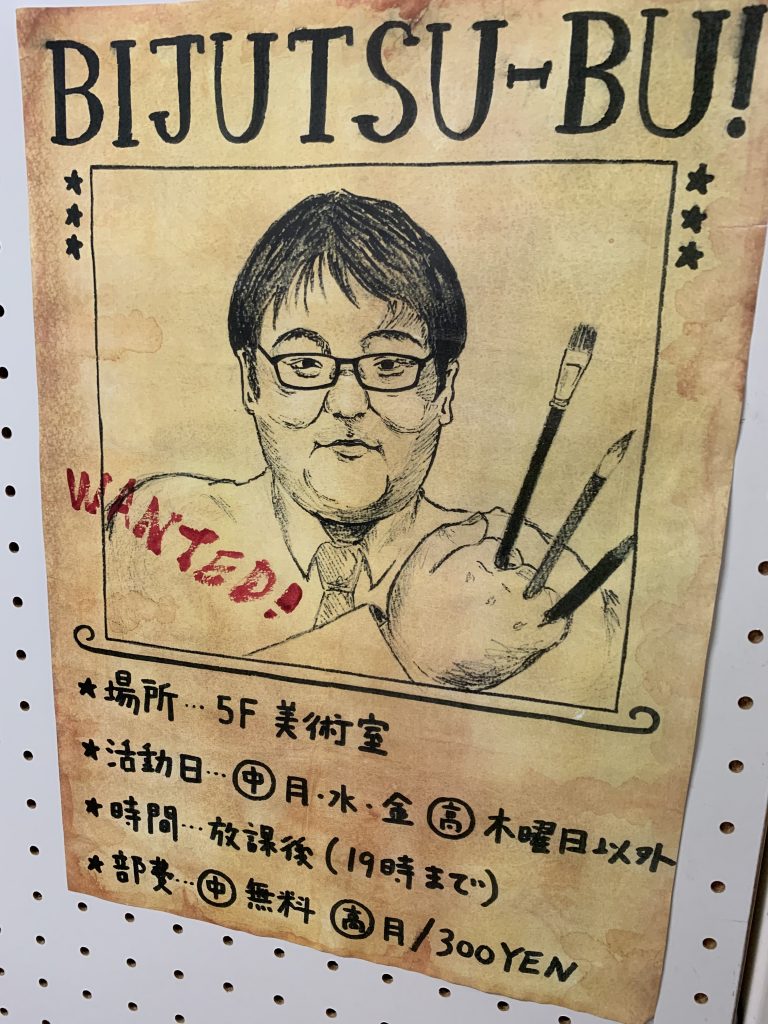 BIJUTSU-BU!
WANTED!
★場所…5F 美術室
★活動日…㊥月・水・金 ㊤木曜日以外
★時間…放課後(19時まで)
★部費…㊥無料 高月/300YEN